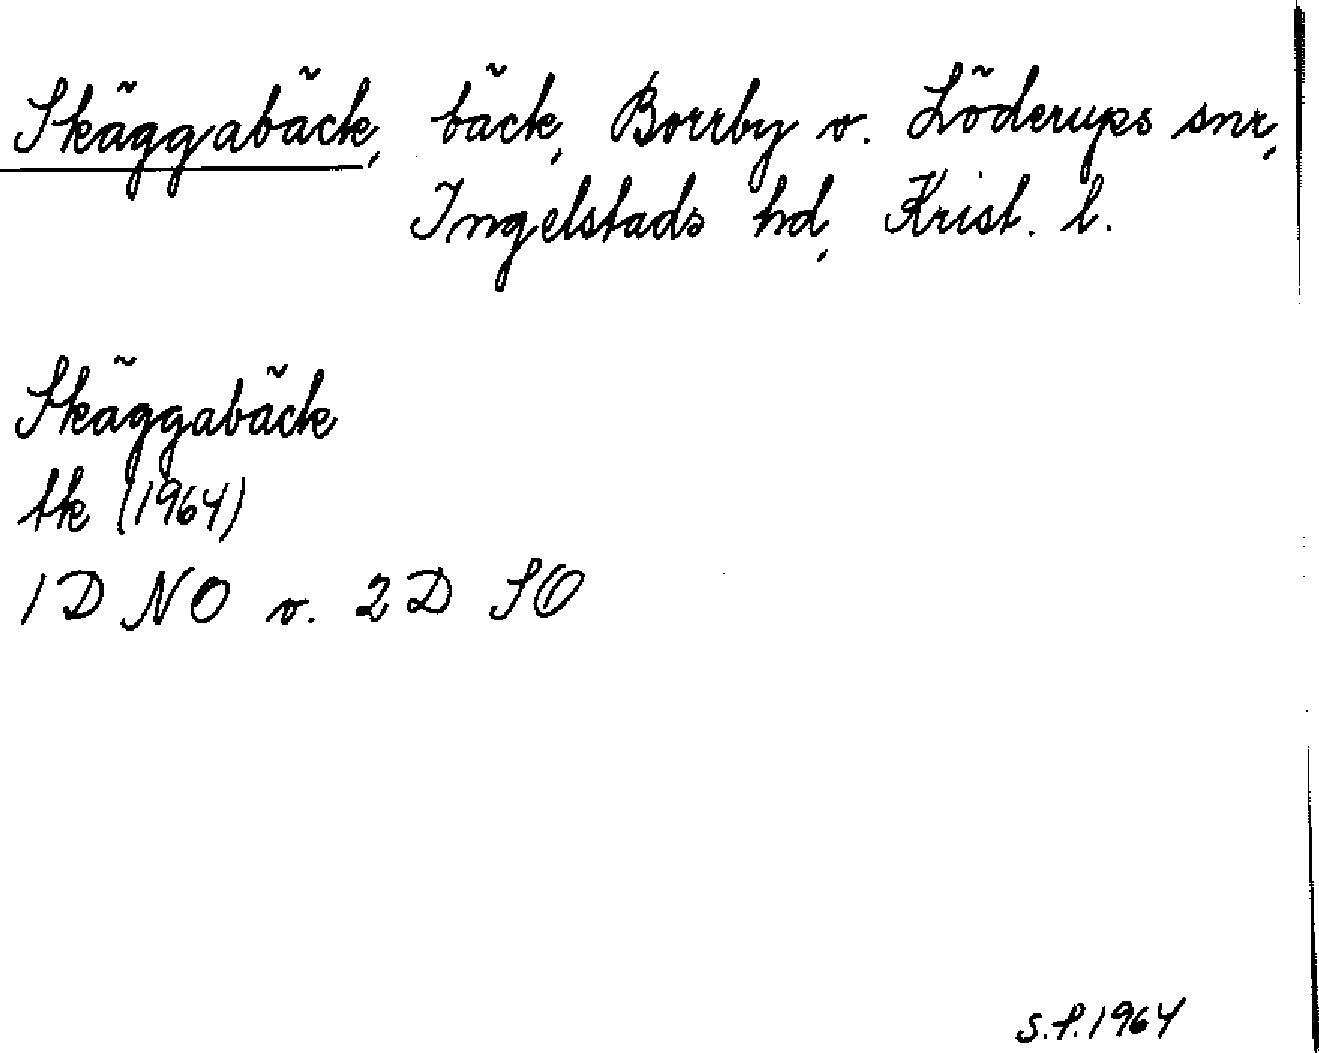 Skäggabäck, bäck, Borrby o. Löderups snr,
Ingelstads hd, Krist. l.
Skäggabäck
tk (1964)
1D NO o. 2D SO
S.P. 1964